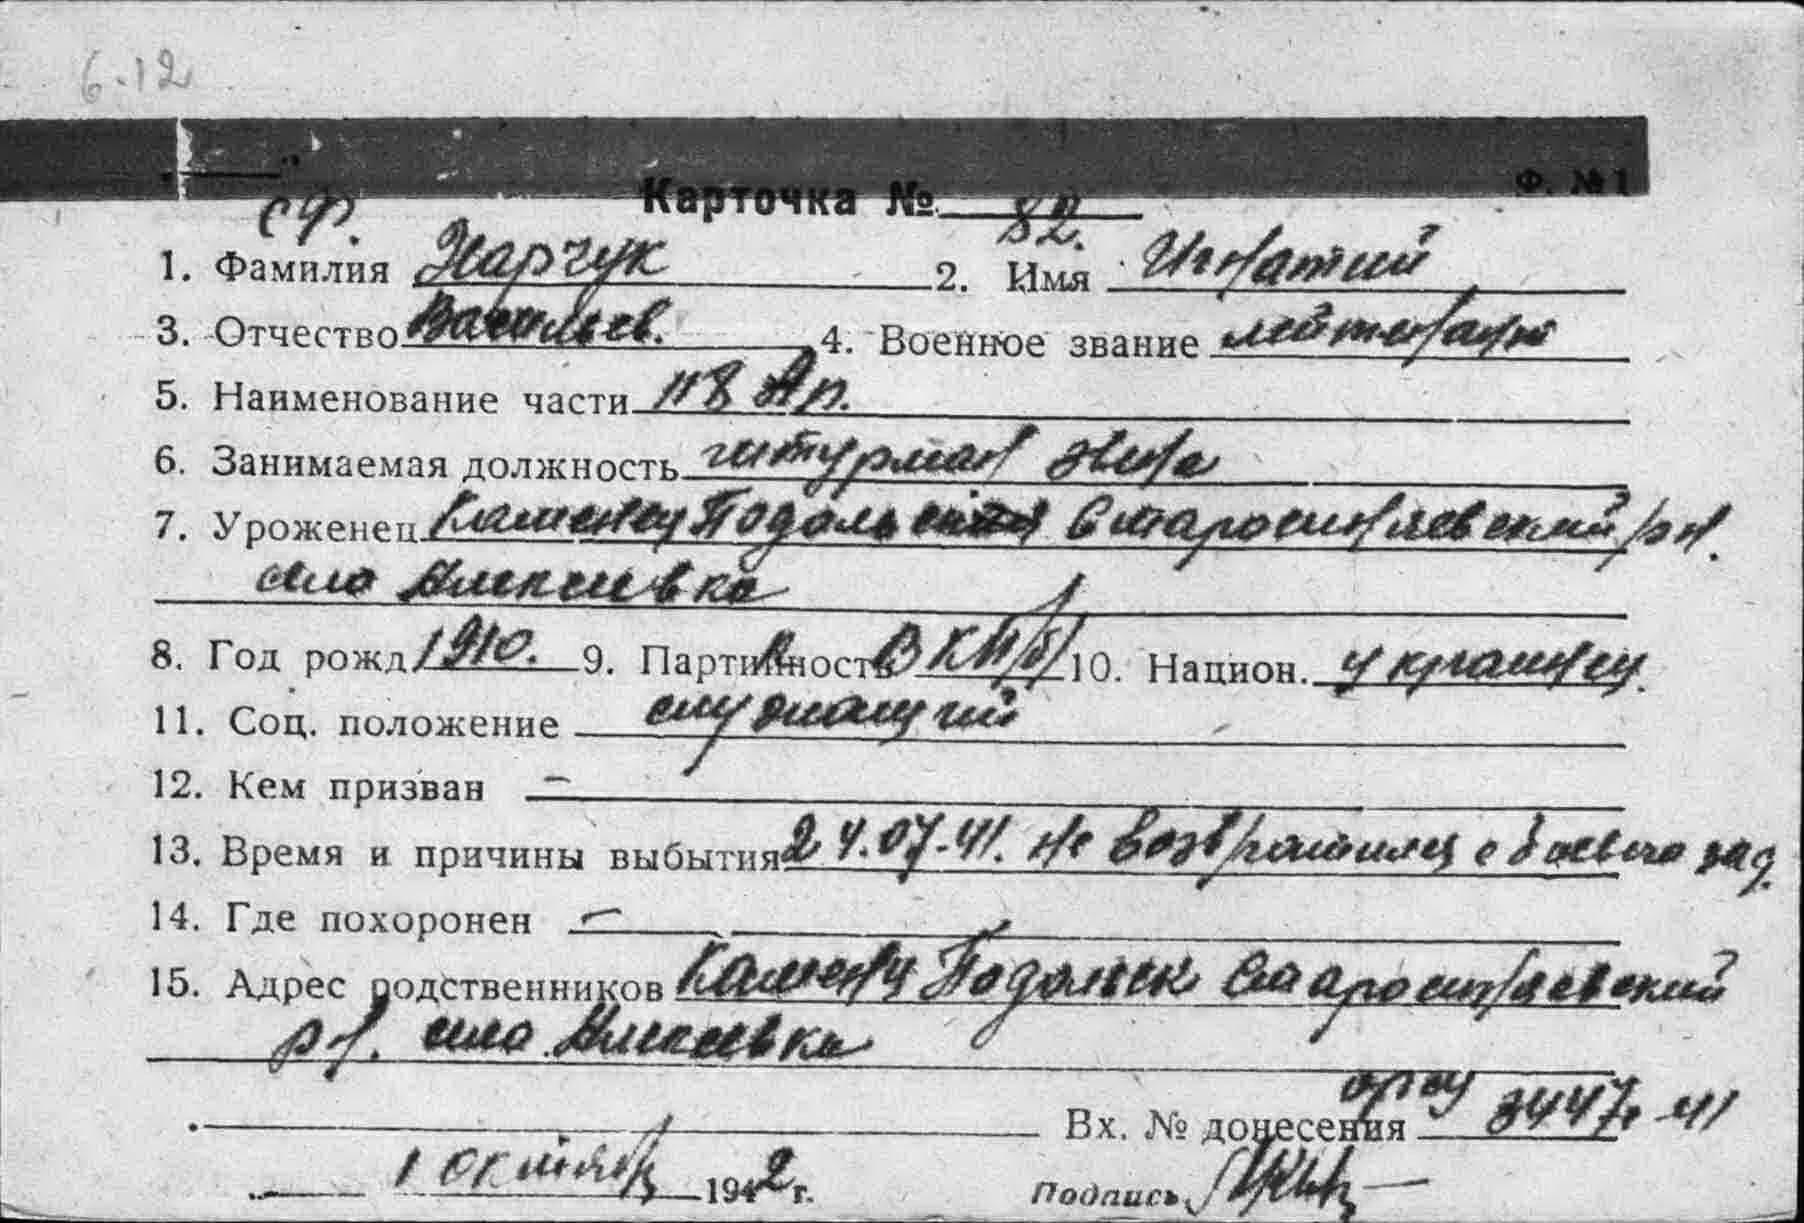 6.12
Ф. №1
СФ. Карточка № 82.
1. Фамилия Харчук 2. Имя Игнатий
3. Отчество Васильев. 4. Военное звание лейтенант
5. Наименование части 118 Ап.
6. Занимаемая должность штурман звена
7. Уроженец Каменец Подольская Старосинявский р-н.
село Алексеевка
8. Год рожд 1910. 9. Партийность ВКП/б/ 10. Национ. украинец.
11. Соц. положение служащий
12. Кем призван —
13. Время и причины выбытия 24.07.41. не возвратился с боевого зад.
14. Где похоронен —
15. Адрес родственников Каменец Подольск Старосинявский
р-н. село Алексеевка
Вх. № донесения 3447. 41
1 октября 1942 г. Подпись